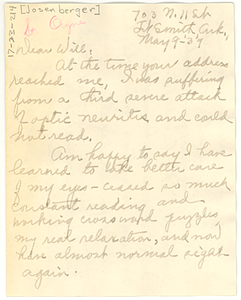 [Josenberger]
703 N. 11 St
Ft Smith, Ark,
May 9-37
Dear Will,
At the time your address
reached me, I was suffering
from a third severe attack
of optic neuritis and could
not read.
Am happy to say I have
learned to take better care
of my eyes - ceased so much
constant reading and
working crossword puzzles,
my real relaxation, and now
have almost normal sight
again.